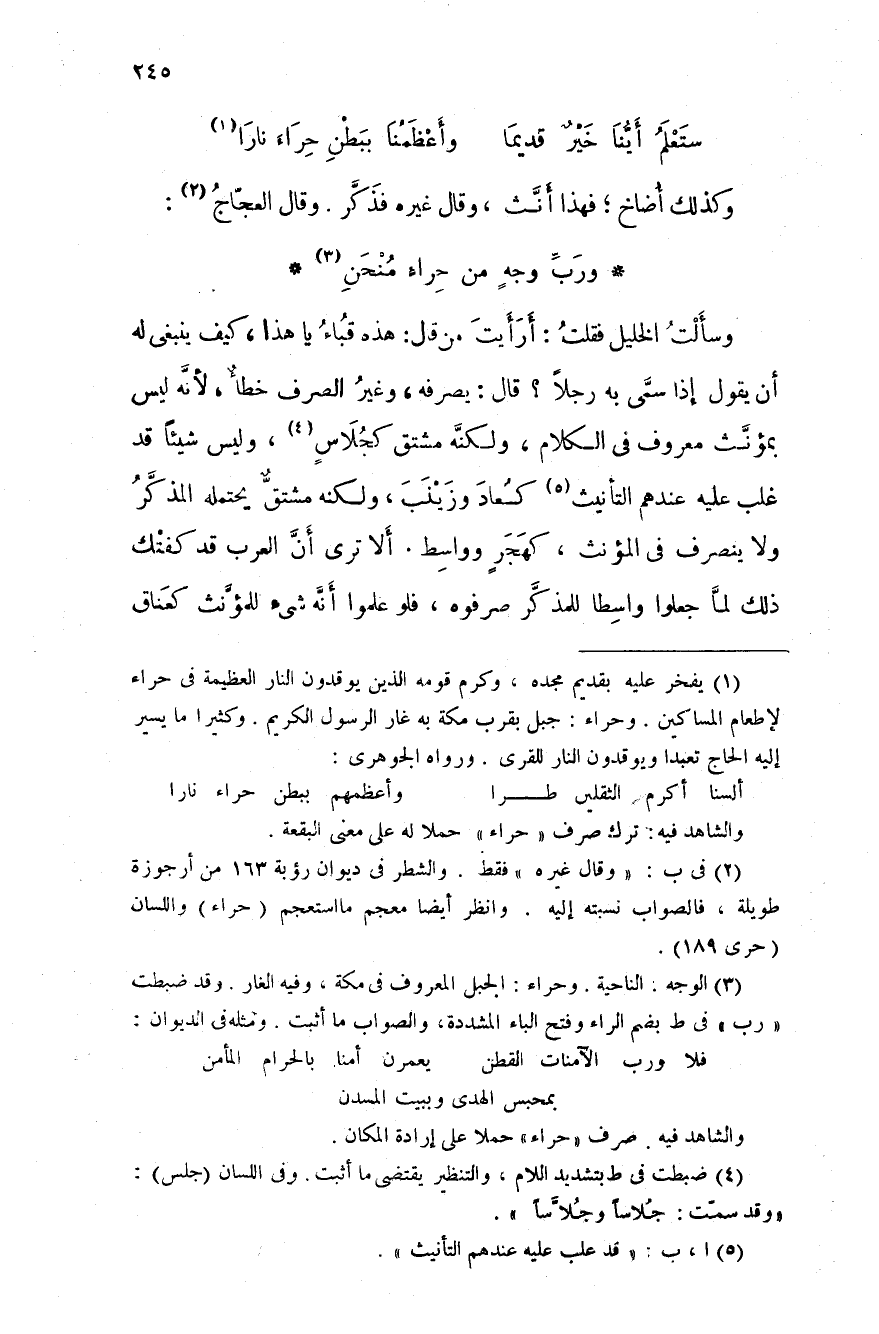 ٢٤٥
ستَعْلَمُ أَيُّنَا خَيْرٌ قديمَا وأَعْظَمُنَا بِبَطْنِ حِرَاءَ نارَا(١)
وكذلك أُضاخ ؛ فهذا أَنَّث ، وقال غيره فذَكَّر . وقال العجّاجُ(٢) :
* وربِّ وجهٍ من حِراءٍ مُنْحَنِ(٣) *
وسأَلْتُ الخليل فقلتُ : أَرَأَيتَ من قال: هذه قُباءُ يا هذا ، كيف ينبغى له
أن يقول إذا سمَّى به رجلاً ؟ قال : يصرفه ، وغيرُ الصرف خطأٌ ، لأنَّه ليس
بمؤنَّث معروف فى الكلام ، ولكنَّه مشتق كجُلَاسٍ(٤) ، وليس شيئاً قد
غلب عليه عندهم التأنيث(٥) كسُعادَ وزَيْنَبَ ، ولكنه مشتقٌّ يحتمله المذكَّرُ
ولا ينصرف فى المؤنث ، كهَجَرٍ وواسِط . ألا ترى أنَّ العرب قد كفتْك
ذلك لمَّا جعلوا واسِطا للمذكَّر صرفوه ، فلو علموا أنَّه شىء للمؤنَّث كعَناق
(١) يفخر عليه بقديم مجده ، وكرم قومه الذين يوقدون النار العظيمة فى حراء
لإطعام المساكين . وحراء : جبل بقرب مكة به غار الرسول الكريم . وكثيرا ما يسير
إليه الحاج تعبدا ويوقدون النار للقرى . ورواه الجوهرى :
ألسنا أكرم الثقلين طــــرا وأعظمهم ببطن حراء نارا
والشاهد فيه: ترك صرف « حراء » حملا له على معنى البقعة .
(٢) فى ب : « وقال غيره » فقط . والشطر فى ديوان رؤبة ١٦٣ من أرجوزة
طويلة ، فالصواب نسبته إليه . وانظر أيضا معجم مااستعجم ( حراء ) واللسان
( حرى ١٨٩) .
(٣) الوجه : الناحية . وحراء : الجبل المعروف فى مكة ، وفيه الغار . وقد ضبطت
« رب » فى ط بضم الراء وفتح الباء المشددة، والصواب ما أثبت . ومثله فى الديوان :
فلا ورب الآمنات القطن يعمرن أمنا بالحرام المأمن
بمحبس الهدى وببيت المسدن
والشاهد فيه . صرف «حراء» حملا على إرادة المكان .
(٤) ضبطت فى ط بتشديد اللام ، والتنظير يقتضى ما أثبت . وفى اللسان (جلس) :
«وقد سمّت : جُلاساً وجُلاَّساً » .
(٥) ا ، ب : « قد علب عليه عندهم التأنيث » .